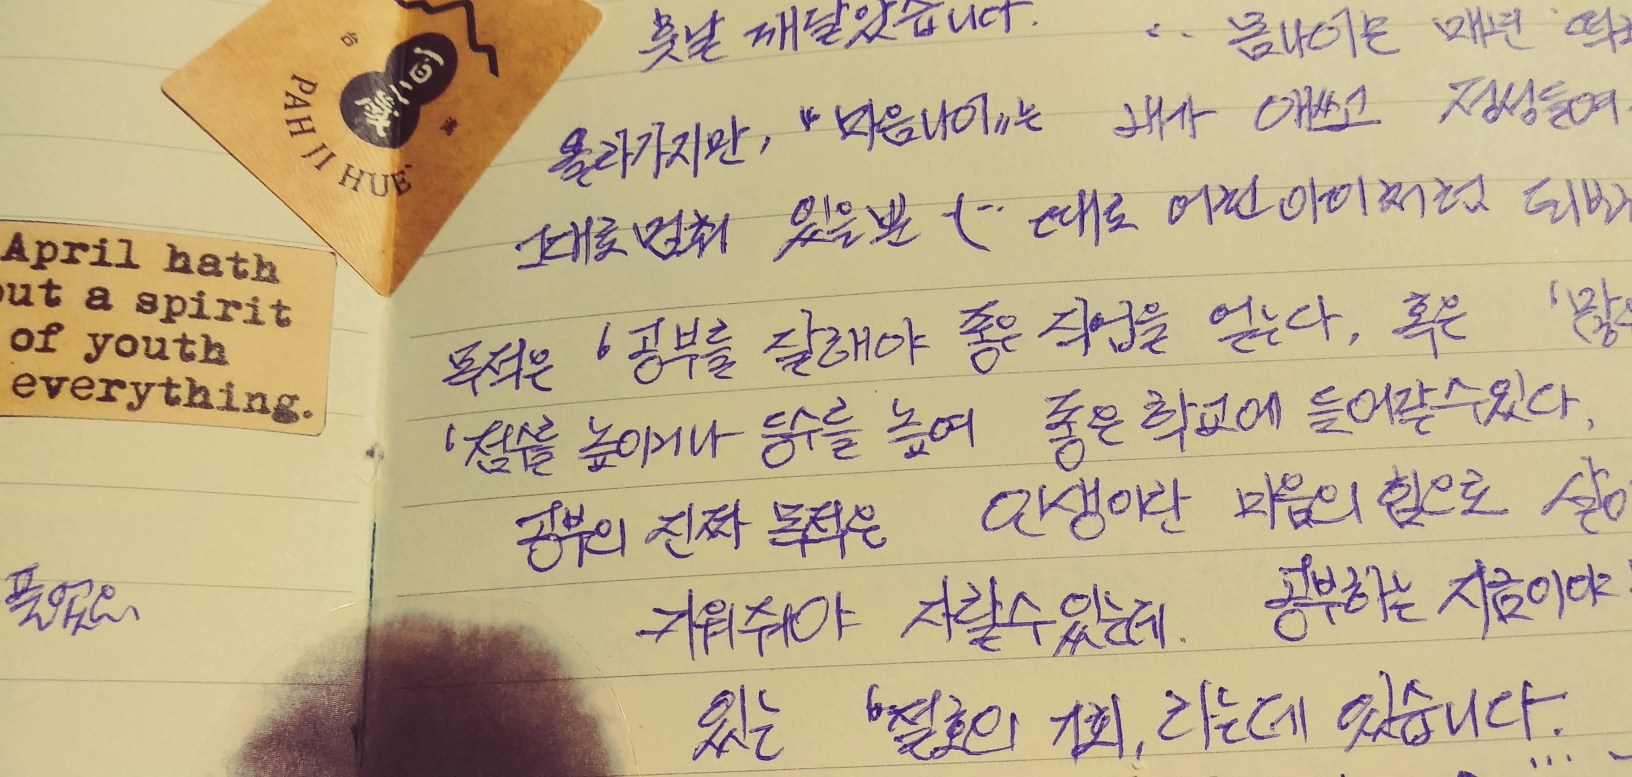 PAH JI HUE
April hath
put a spirit
of youth
everything.
풋
훗날 깨달았습니다. 몸나이는 매년
올라가지만, "마음나이"는 내가 애쓰고 정성들여
그대로 멈춰 있을 뿐 때로 어린아이처럼
목적은 '공부를 잘해야 좋은 직업을 얻는다, 혹은
'점수를 높이거나 등수를 높여 좋은 학교에 들어갈 수 있다,
공부의 진짜 목적은 인생이란 마음의 힘으로
키워줘야 자랄 수 있는데. 공부하는 지금이야
있는 '절호의 기회, 라는데 있습니다.